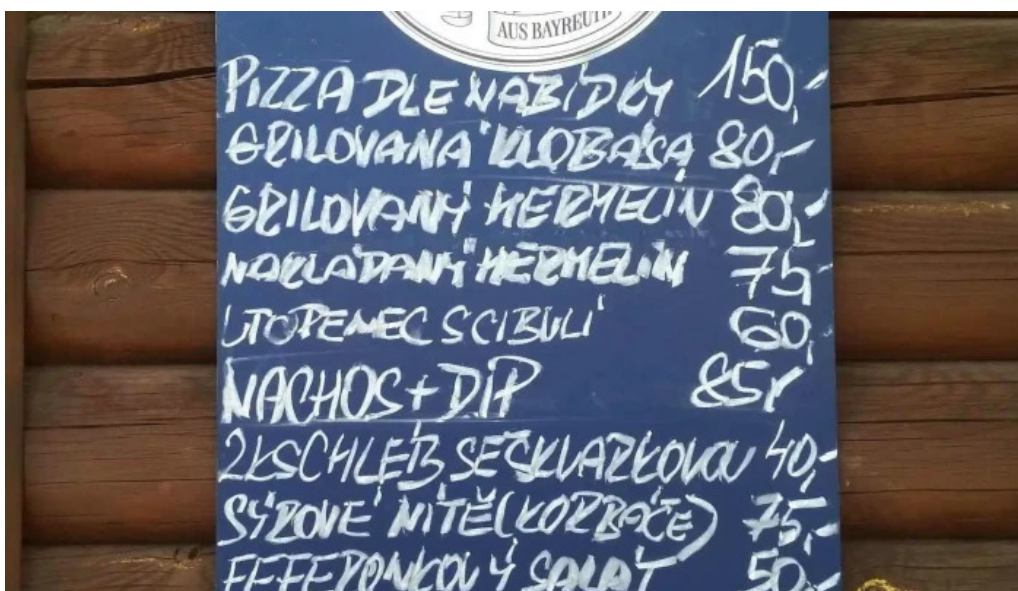 AUS BAYREUTH
PIZZA DLE NABÍDKY 150,-
GRILOVANÁ KLOBÁSA 80,-
GRILOVANÝ HERMELÍN 80,-
NAKLÁDANÝ HERMELÍN 75,-
UTOPENEC S CIBULÍ 60,
NACHOS + DIP 85,-
2KS CHLÉB SE ŠKVARKOVOU 40,-
SÝROVÉ NITĚ (KORBÁČE) 75,-
FEFERONKOVÝ SALÁT 50,-